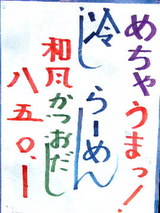 めちゃうまっ！
冷しらーめん
和風かつおだし
八五〇.ー